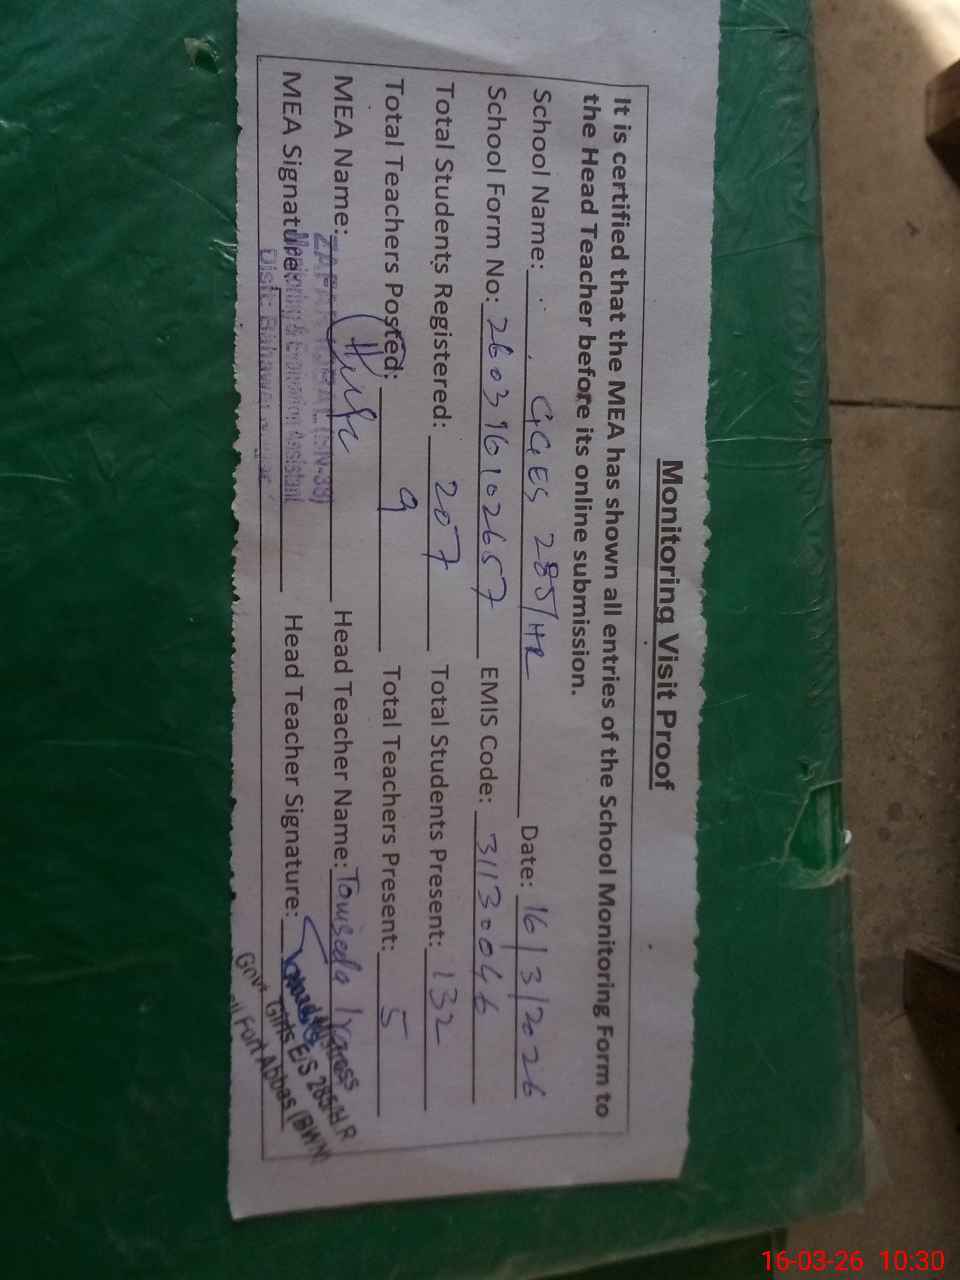 Monitoring Visit Proof
It is certified that the MEA has shown all entries of the School Monitoring Form to
the Head Teacher before its online submission.
School Name: GGES 285/HR Date: 16/3/2026
School Form No: 260396102657 EMIS Code: 31130046
Total Students Registered: 207 Total Students Present: 132
Total Teachers Posted: 9 Total Teachers Present: 5
MEA Name: ZAFAR IQBAL (SN-38) Head Teacher Name:
MEA Signature: Monitoring & Evaluation Assistant Head Teacher Signature:
Distt: Bahawalnagar
Govt. Girls E/S 285/H R
Fort Abbas (BWN)
16-03-26 10:30